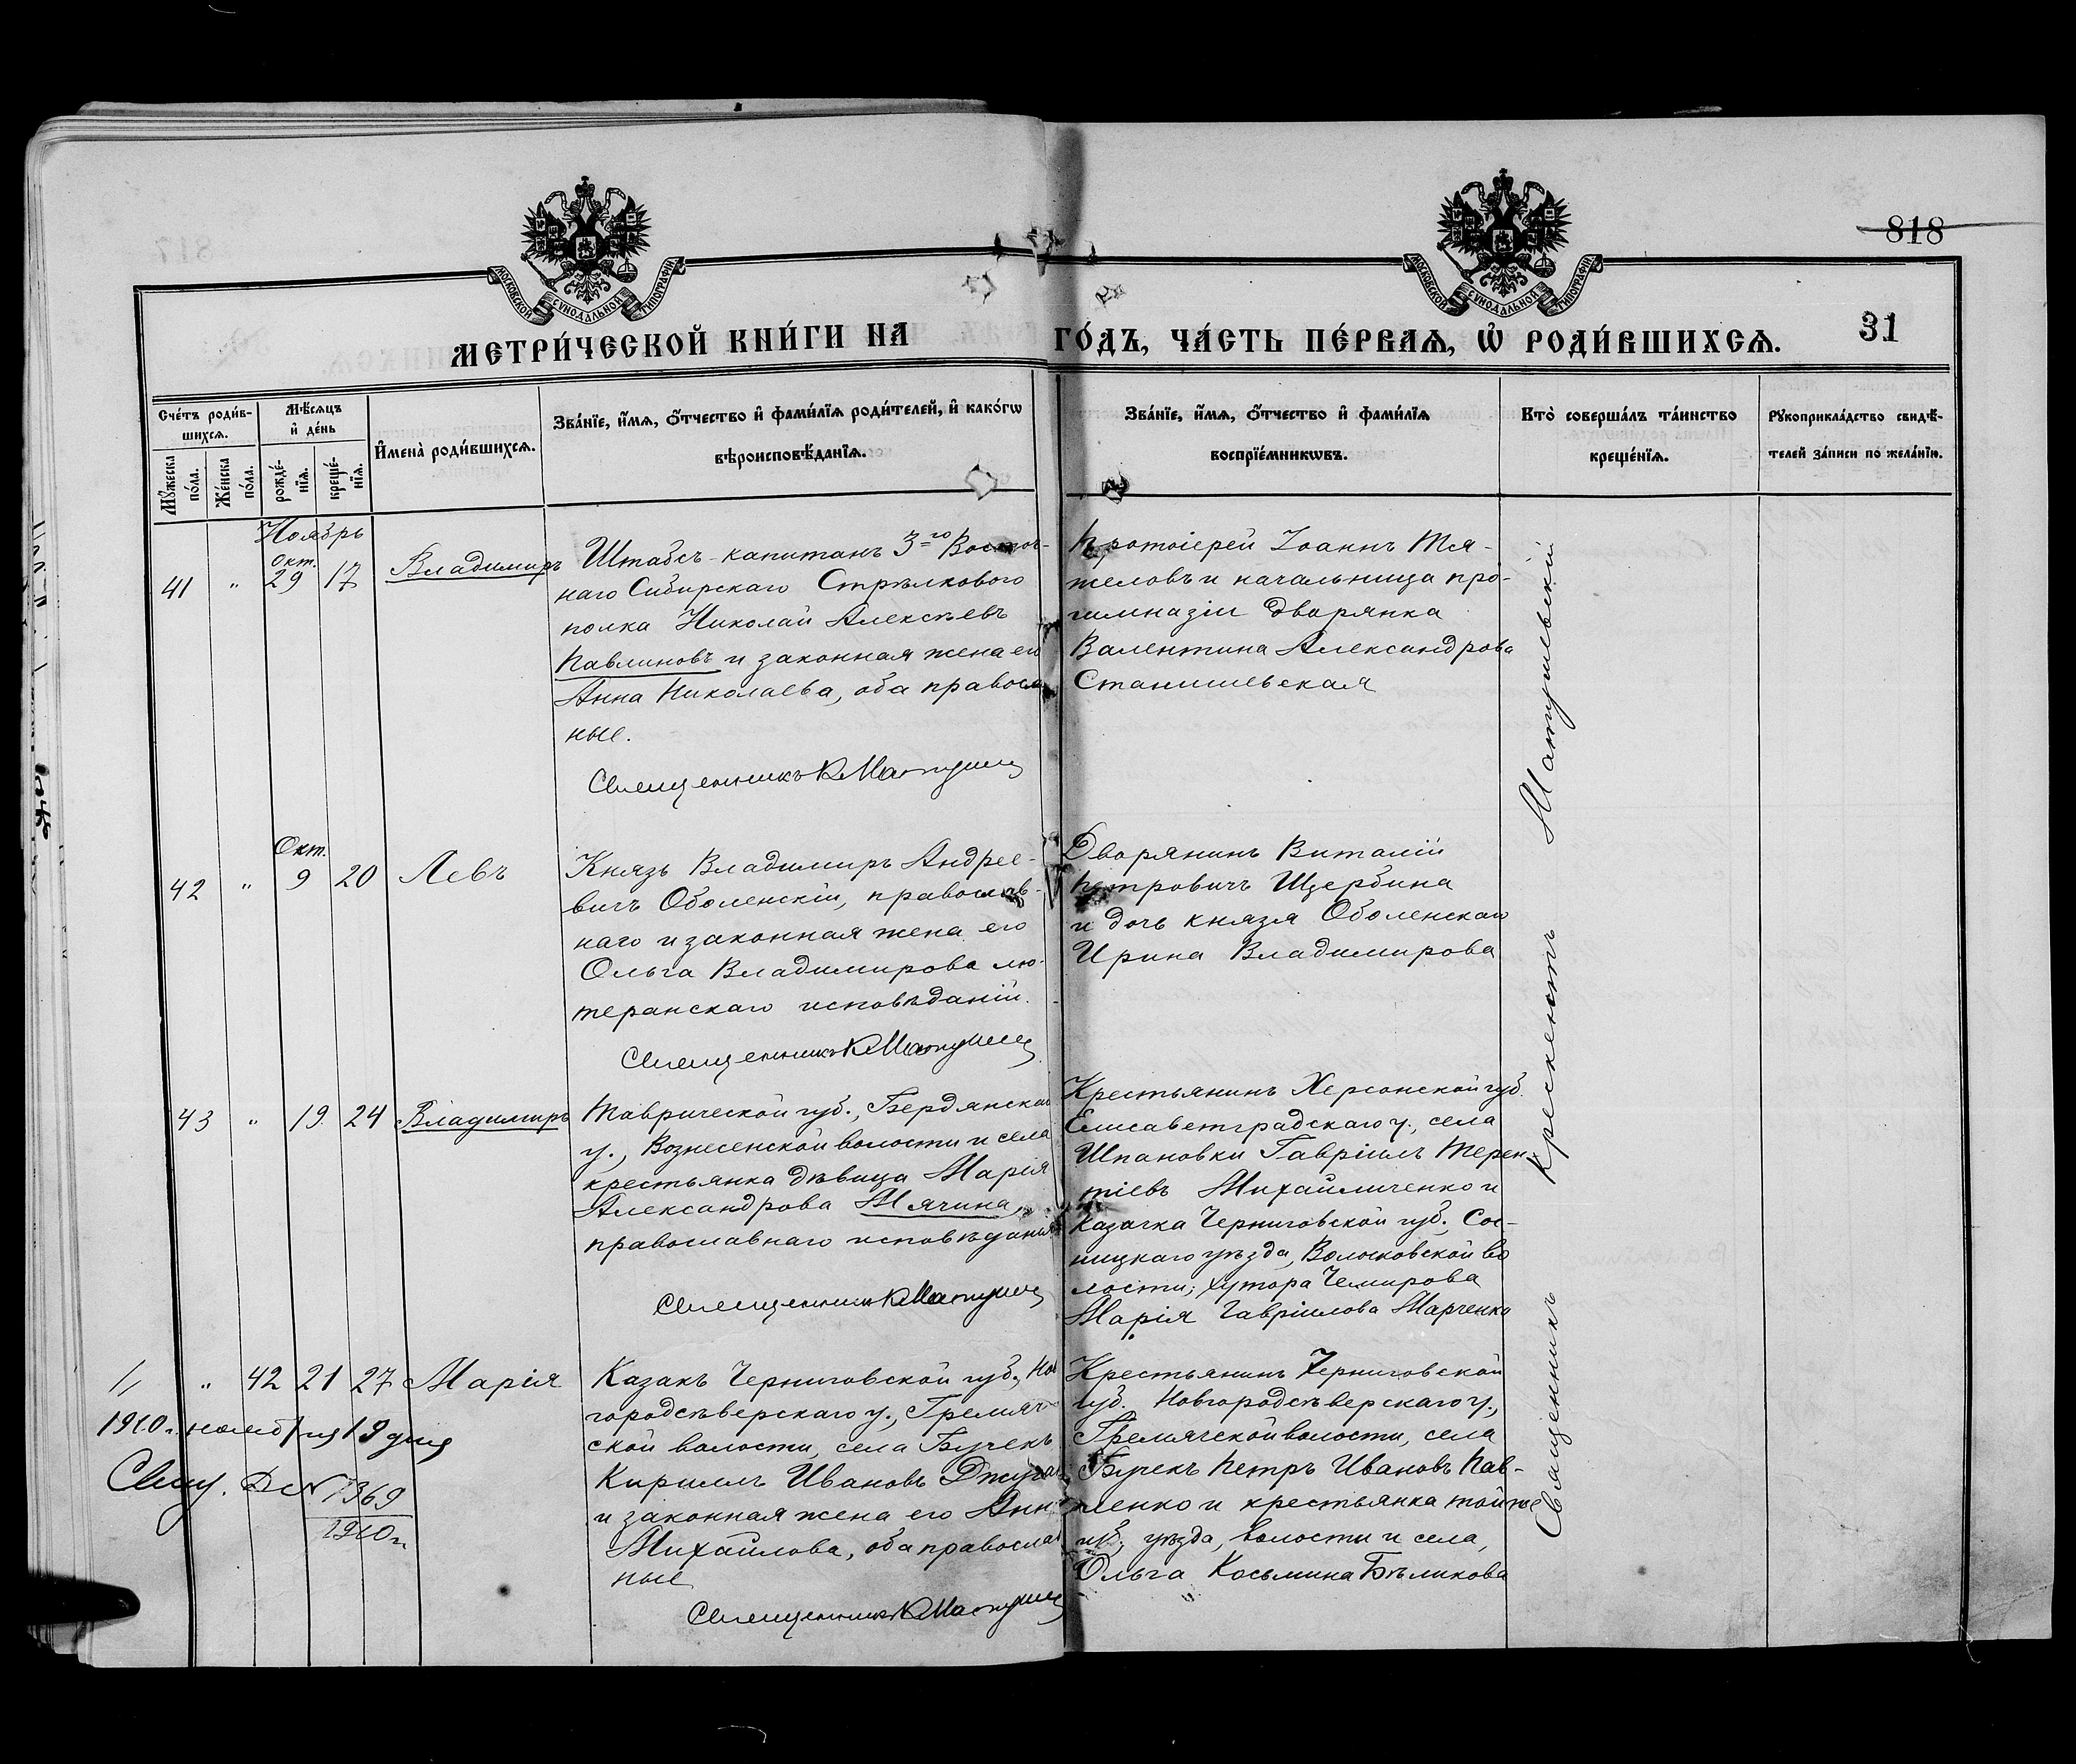 818
МОСКОВСКОЙ СѴНОДАЛЬНОЙ ТИПОГРАФІИ
МОСКОВСКОЙ СѴНОДАЛЬНОЙ ТИПОГРАФІИ
МЕТРИ́ЧЕСКОЙ КНИ́ГИ НА ГО́ДЪ, ЧА́СТЬ ПЕ́РВАѦ, Ѡ҆ РОДИ́ВШИХСѦ.
31
Сче́тъ роди́в-
шихсѧ.
Мꙋ́жеска по́ла.
Же́нска по́ла.
Мѣ́сѧцъ
и҆ де́нь
рожде́-
нїѧ.
креще́-
нїѧ.
И҆мена̀ роди́вшихсѧ.
Зва́нїе, и҆́мѧ, ѻ҆́тчество и҆ фами́лїѧ роди́телей, и҆ како́гѡ
вѣроисповѣ́данїѧ.
Зва́нїе, и҆́мѧ, ѻ҆́тчество и҆ фами́лїѧ
воспрїе́мникѡвъ.
Кто̀ соверша́лъ та́инство
креще́нїѧ.
Рꙋкоприкла́дство свидѣ́-
телей за́писи по жела́нїю.
Ноябрь
41 " Окт. 29 17 Владимиръ
Штабсъ-капитанъ 3-го Восточ-
наго Сибирскаго Стрѣлкового
полка Николай Алексѣевъ
Павлиновъ и законная жена его
Анна Николаева, оба правосла
ные.
Священникъ К Матуш
Протоіерей Іоаннъ Тя-
желовъ и начальница про-
гимназіи дворянка
Валентина Александрова
Станишевская
42 " Окт. 9 20 Левъ
Князь Владимиръ Андрее-
вичъ Оболенскій, православ-
наго и законная жена его
Ольга Владимирова лю-
теранскаго исповѣданій.
Священникъ К Матуш
Дворянинъ Виталій
Петровичъ Щербина
и дочь князя Оболенскаго
Ирина Владимирова
43 " 19 24 Владимиръ
Таврической губ., Бердянскаго
у., Вознесенской волости и села
крестьянка дѣвица Марія
Александрова Мячина,
православнаго исповѣданія
Священникъ К Матуш
Крестьянинъ Херсонской губ.
Елисаветградскаго у., села
Шпановки Гавріилъ Терен-
тіевъ Михайличенко и
казачка Черниговской губ., Сос-
ницкаго уѣзда, Волосковской во
лости, хутора Чемирова
Марія Гавріилова Марченко
" 42 21 27 Марія
Казакъ Черниговской губ., Нов
городсѣверскаго у., Гремяч-
ской волости, села Бучекъ
Кириллъ Ивановъ
и законная жена его Анна
Михайлова, оба православ
ные
Священникъ К Матуш
Крестьянинъ Черниговской
губ. Новгородсѣверскаго у.,
Гремячской волости, села
Бучекъ Петръ Ивановъ Пав-
ленко и крестьянка той же
губ., уѣзда, волости и села,
Ольга Косьмина Бѣликова
1910 г. ноября 19 дня
№ 1369
1910 г.
Священникъ Крескентъ Матушевскій